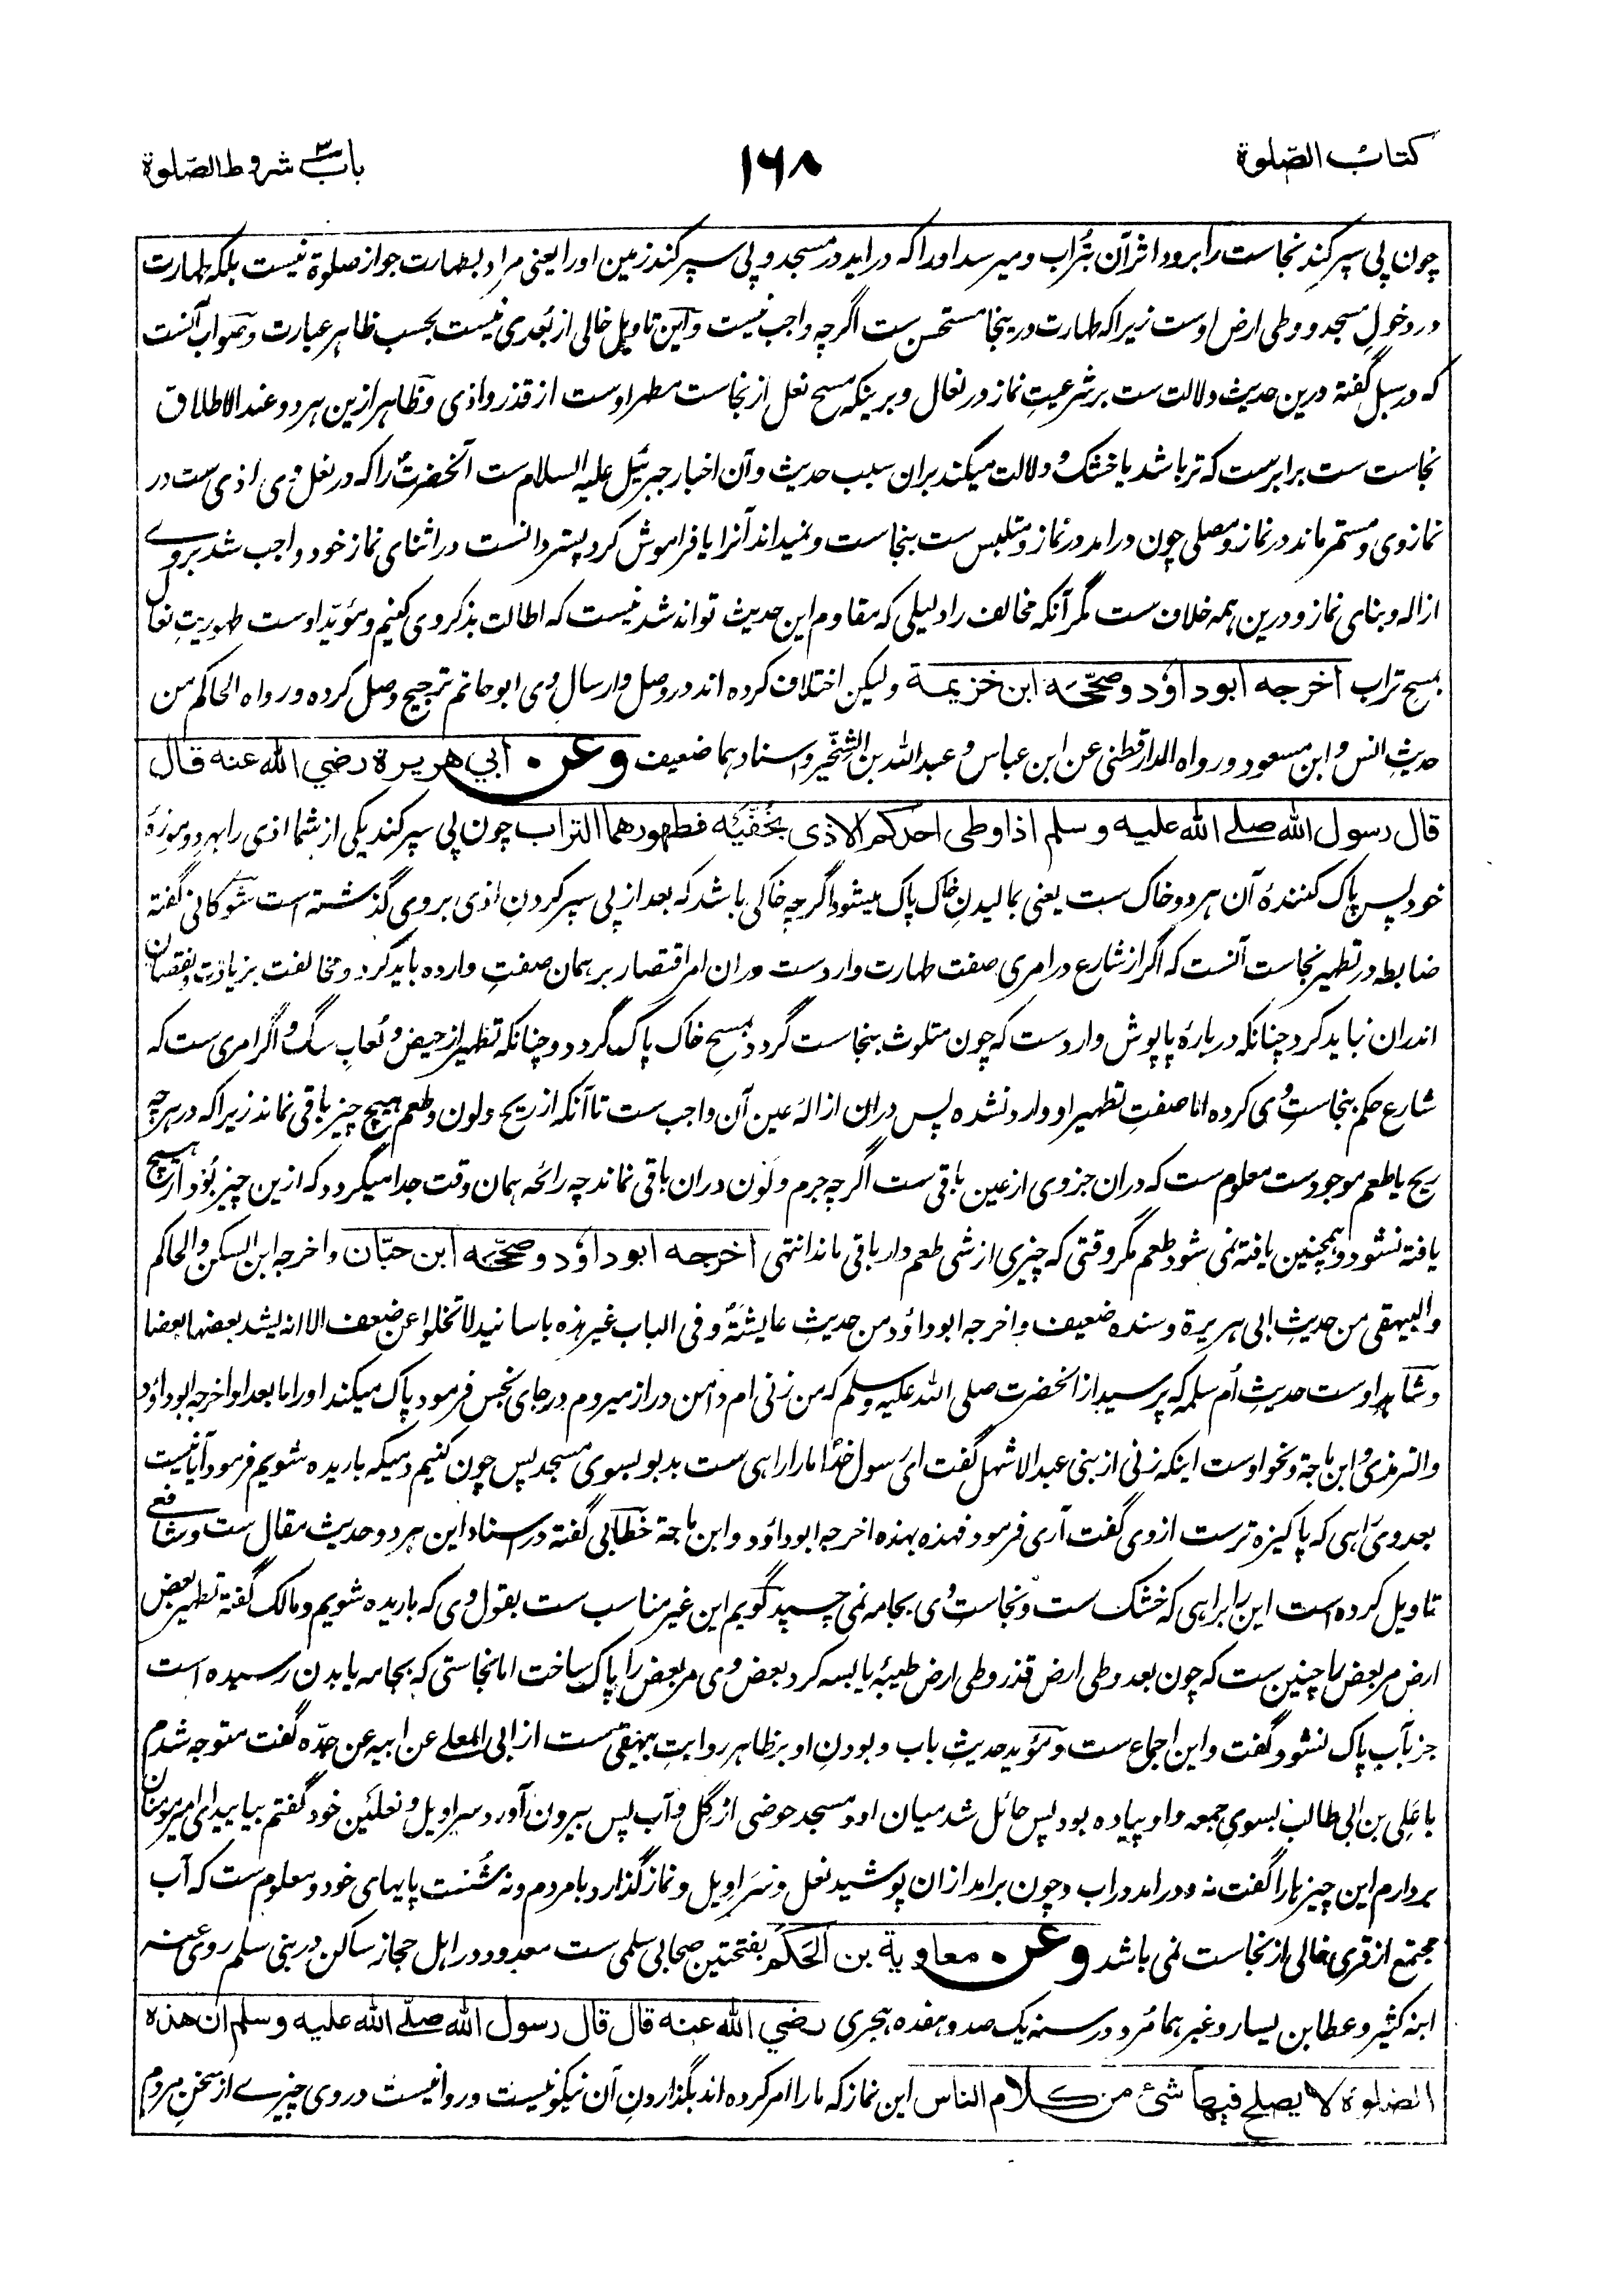 کتاب الصّلوة
۱۶۸
باب۳ شروط الصّلوة
چون پی سپر کند نجاست را برود اثر آن بتُراب و میرسد او را که دراید در مسجد و پی سپر کند زمین او را یعنی مراد بطهارت جواز صلوة نیست بلکه طهارت
در دخولِ مسجد و وطی ارض اوست زیرا که طهارت درینجا مستحسن ست اگرچه واجب نیست و این تاویل خالی از بُعدی نیست بحسب ظاهر عبارت و صواب آنست
که در سبل گفته درین حدیث دلالت ست بر شرعیتِ نماز در نعال و برینکه مسح نعل از نجاست مطهر اوست از قذر و اذی و ظاهر ازین هر دو عند الاطلاق
نجاست ست برابرست که تر باشد یا خشک و دلالت میکند بران سبب حدیث و آن اخبار جبرئیل علیه السلام ست آنحضرت را که در نعل وی اذی ست در
نماز وی و مستمر ماند در نماز و مصلی چون درامد در نماز و متلبس ست بنجاست و نمیداند آنرا یا فراموش کرد پستر دانست در اثنای نماز خود واجب شد بروے
ازاله و بنای نماز و درین همه خلاف ست مگر آنکه مخالف را دلیلی که مقاوم این حدیث تواند شد نیست که اطالت بذکر وی کنیم و مؤیّد اوست طهوریتِ نعال
بمسح تراب أخرجه أبو داؤد وصحّحه ابن خزیمة ولیکن اختلاف کرده اند در وصل و ارسال وی ابو حاتم ترجیح وصل کرده ورواه الحاکم من
حدیثِ انس و ابن مسعود و رواه الدارقطنی عن ابن عباس و عبد الله بن الشِخّیر و اسنادهما ضعیف وعن أبي هریرة رضي الله عنه قال
قال رسول الله صلے الله علیه وسلم اذا وطی احدکم الاذی بخُفَّیه فطهورهما التراب چون پی سپر کند یکی از شما اذی را بهر دو موزۀ
خود پس پاک کنندۀ آن هر دو خاک ست یعنی بمالیدنِ خاک پاک میشود اگرچه خاکی باشد که بعد از پی سپر کردنِ اذی بروی گذشته است شوکانی گفته
ضابطه در تطهیر نجاست آنست که اگر از شارع در امری صفت طهارت واردست دران امر اقتصار بر همان صفتِ وارده باید کرد و مخالفت بزیادت و نقصان
اندران نباید کرد چنانکه دربارۀ پاپوش واردست که چون متلوث بنجاست گردد بمسحِ خاک پاک گردد و چنانکه تطهیر از حیض و لُعابِ سگ و اگر امری ست که
شارع حکم بنجاستِ وی کرده اما صفتِ تطهیر او وارد نشده پس دران ازالهٔ عین آن واجب ست تا آنکه از ریح و لون و طعم هیچ چیز باقی نماند زیرا که در هر چه
ریح یا طعم موجودست معلوم ست که دران جزوی از عین باقی ست اگرچه جرم و لَون دران باقی نماند چه رائحه همان وقت جدا میگردد که ازین چیز بُوَد ارنه هیچ
یافته نشود و همچنین یافته نمی شود طعم مگر وقتی که چیزی از شی طعم دار باقی ماند انتهی أخرجه ابو داؤد وصحّحه ابن حبّان واخرجه ابن السکن والحاکم
والبیهقی من حدیثِ ابی هریرة وسنده ضعیف واخرجه ابو داؤد من حدیثِ عایشةؓ وفی الباب غیر هذه باسانید لا تخلوا عن ضعف الا انه یشد بعضها بعضا
و شاهد اوست حدیثِ اُم سلمه که پرسید از آنحضرت صلی الله علیه وسلم که من زنی ام دامن دراز میروم در جای نجس فرمود پاک میکند او را ما بعد او اخرجه ابو داؤد
والترمذی و ابن ماجة و نحو اوست اینکه زنی از بنی عبد الاشهل گفت ای رسولِ خدا ما را راهی ست بدبو بسوی مسجد پس چون کنیم دمیکه باریده شویم فرمود آیا نیست
بعد وی راهی که پاکیزه ترست از وی گفت آری فرمود فهذه بهذه اخرجه ابو داؤد و ابن ماجة خطابی گفته در اسناد این هر دو حدیث مقال ست و شافعی
تاویل کرده است این را براهی که خشک ست و نجاستِ وی بجامه نمی چسپد گویم این غیر مناسب ست بقول وی که باریده شویم و مالک گفته تطهیر بعض
ارض مر بعض را چنین ست که چون بعد وطی ارضِ قذر وطی ارض طیبۀ یابسه کرد بعض وی مر بعض را پاک ساخت اما نجاستی که بجامه یا بدن رسیده است
جز بآب پاک نشود گفت و این اجماع ست و مؤید حدیثِ باب و بودنِ او بر ظاهر روایتِ بیهقی ست از ابی المعلے عن ابیه عن جدّه گفت متوجه شدم
با علی بن ابی طالب بسوی جمعه و او پیاده بود پس حائل شد میان او و مسجد حوضی از گِل و آب پس بیرون آورد سراویل و نعلَین خود گفتم بیایید ای امیر مومنان
بردارم این چیزها را گفت نه و درامد دراب و چون برامد ازان پوشید نعل و سَراوِیل و نماز گذارد بامردم و نه شُست پایهای خود و معلوم ست که آب
مجتمع از قری خالی از نجاست نمی باشد وعن معاویة بن الحَکَم بفتحتین صحابی سلمی ست معدود در اهل حجاز ساکن در بنی سلم روی عنه
ابنه کثیر و عطا بن یسار و غیرهما مُرد در سنه یک صد و هفده هجری رضي الله عنه قال قال رسول الله صلّے الله علیه وسلم ان هذه
الصلوة لا یصلح فیها شئ من کلام الناس این نماز که ما را امر کرده اند بگذاردنِ آن نیکو نیست و روا نیست در وی چیزے از سخنِ مردم